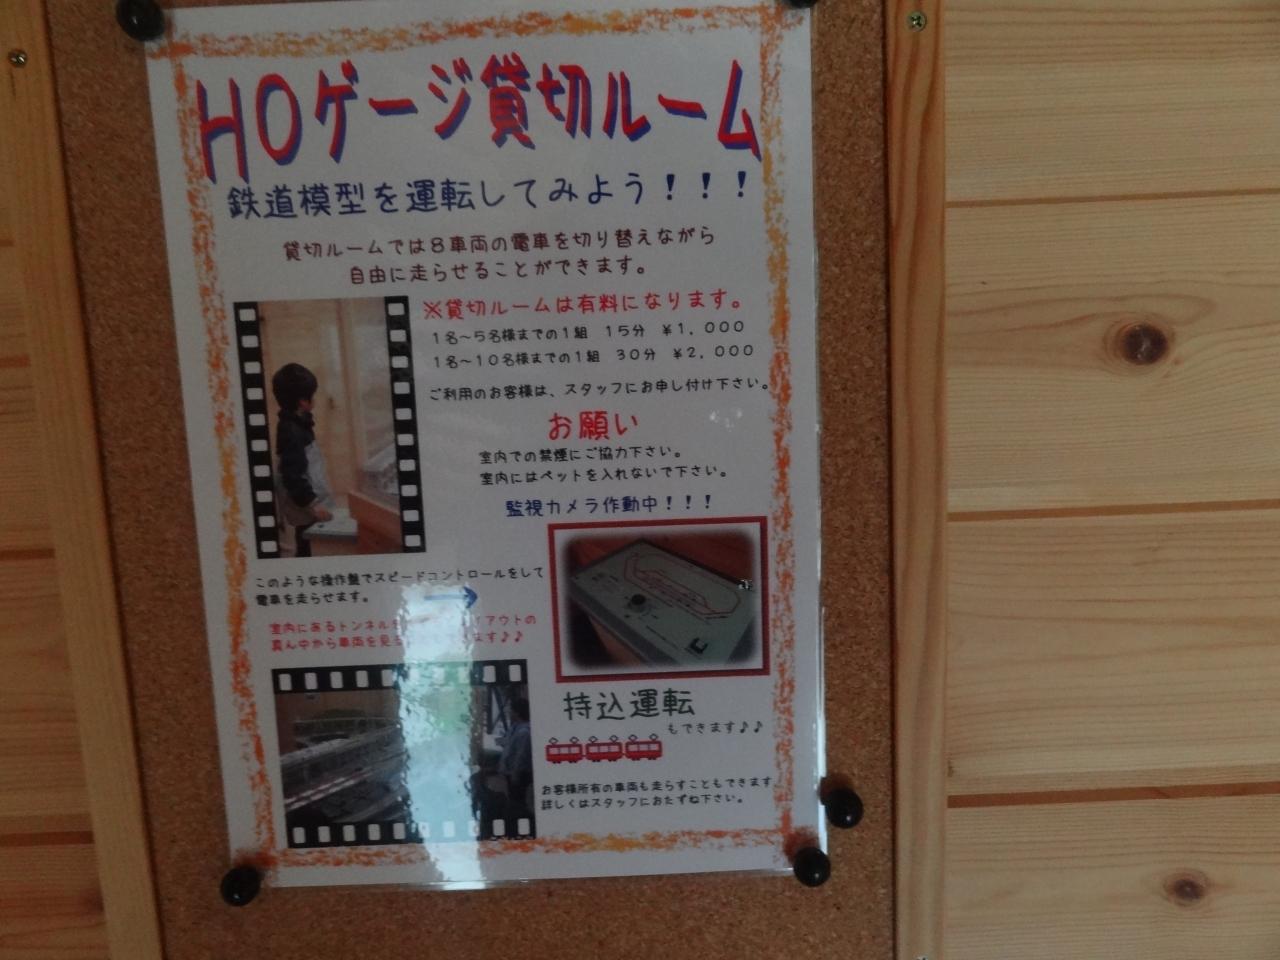 HOゲージ貸切ルーム
鉄道模型を運転してみよう！！！
貸切ルームでは８車両の電車を切り替えながら
自由に走らせることができます。
※貸切ルームは有料になります。
１名～５名様までの１組　１５分　￥１，０００
１名～１０名様までの１組　３０分　￥２，０００
ご利用のお客様は、スタッフにお申し付け下さい。
お願い
室内での禁煙にご協力下さい。
室内にはペットを入れないで下さい。
監視カメラ作動中！！！
このような操作盤でスピードコントロールをして
電車を走らせます。
室内にあるトンネルを　　　イアウトの
真ん中から車両を見る　　　ます♪♪
持込運転
もできます♪♪
お客様所有の車両も走らすこともできます。
詳しくはスタッフにおたずね下さい。